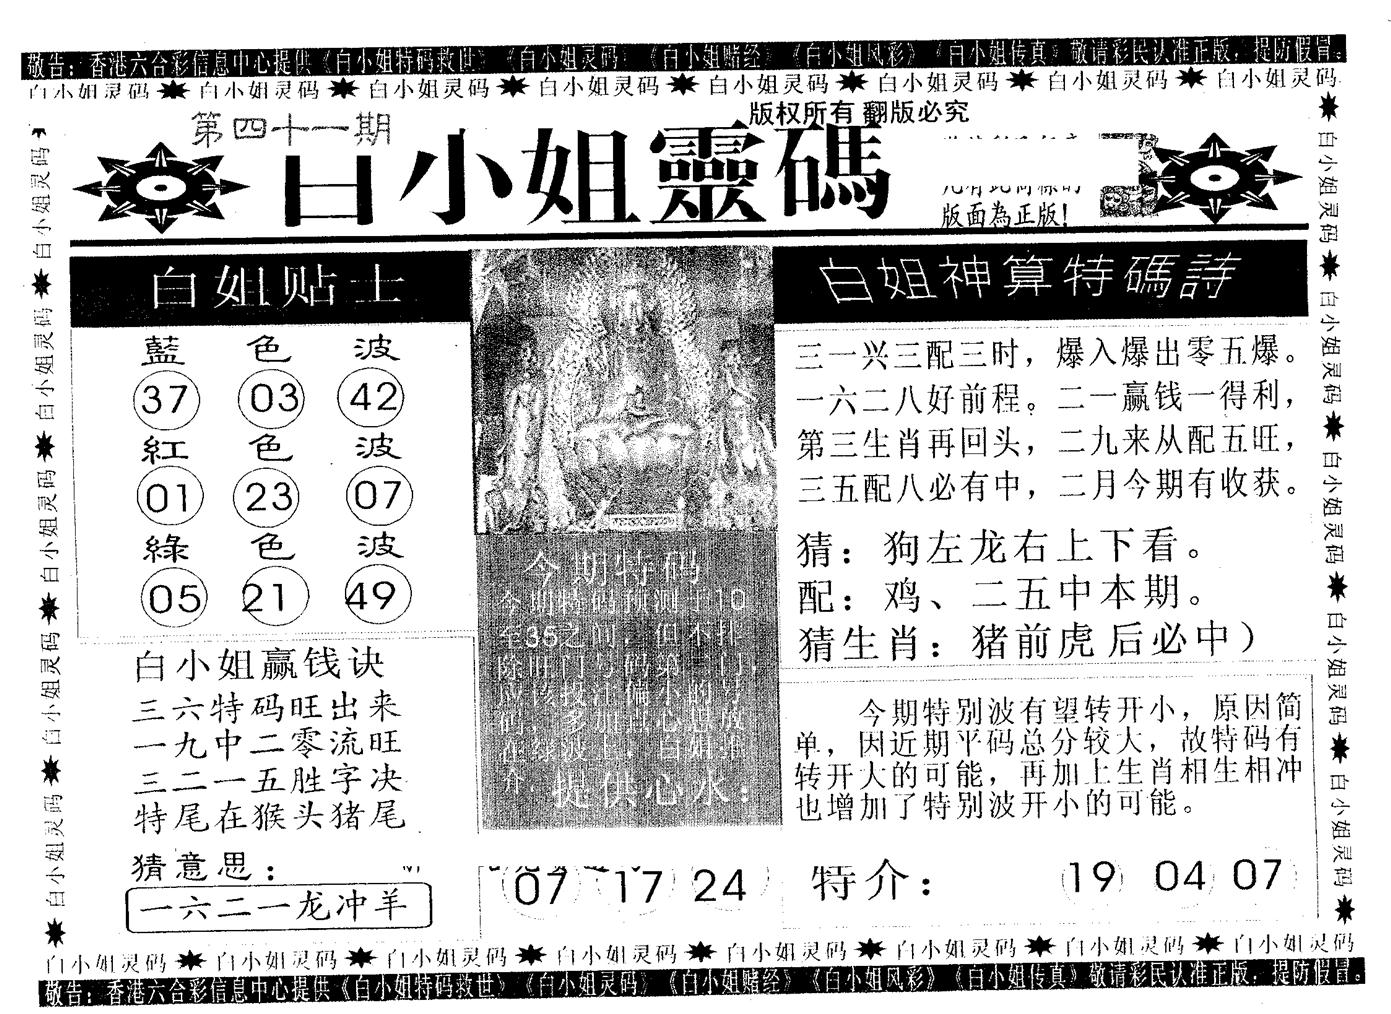 敬告：香港六合彩信息中心提供《白小姐特码救世》《白小姐灵码》《白小姐赌经》《白小姐风彩》《白小姐传真》敬请彩民认准正版，提防假冒。
白小姐灵码 白小姐灵码 白小姐灵码 白小姐灵码 白小姐灵码 白小姐灵码 白小姐灵码 白小姐灵码
版权所有 翻版必究
第四十一期
白小姐靈碼
凡有此商標的
版面為正版!
白姐贴士
藍色波
37 03 42
紅色波
01 23 07
綠色波
05 21 49
白小姐赢钱诀
三六特码旺出来
一九中二零流旺
三二一五胜字决
特尾在猴头猪尾
猜意思：
一六二一龙冲羊
今期特码
今期特码预测于10
至35之间，但不排
除旺门号码第一门，
应该投注偏小的号
码，多加留心息放
在绿波上。白姐推
介：提供心水：
07 17 24
白姐神算特碼詩
三一兴三配三时，爆入爆出零五爆。
一六二八好前程。二一赢钱一得利，
第三生肖再回头，二九来从配五旺，
三五配八必有中，二月今期有收获。
猜：狗左龙右上下看。
配：鸡、二五中本期。
猜生肖：猪前虎后必中）
今期特别波有望转开小，原因简
单，因近期平码总分较大，故特码有
转开大的可能，再加上生肖相生相冲
也增加了特别波开小的可能。
特介： 19 04 07
白小姐灵码 白小姐灵码 白小姐灵码 白小姐灵码 白小姐灵码
白小姐灵码 白小姐灵码 白小姐灵码 白小姐灵码 白小姐灵码
白小姐灵码 白小姐灵码 白小姐灵码 白小姐灵码 白小姐灵码 白小姐灵码 白小姐灵码 白小姐灵码
敬告：香港六合彩信息中心提供《白小姐特码救世》《白小姐灵码》《白小姐赌经》《白小姐风彩》《白小姐传真》敬请彩民认准正版，提防假冒。